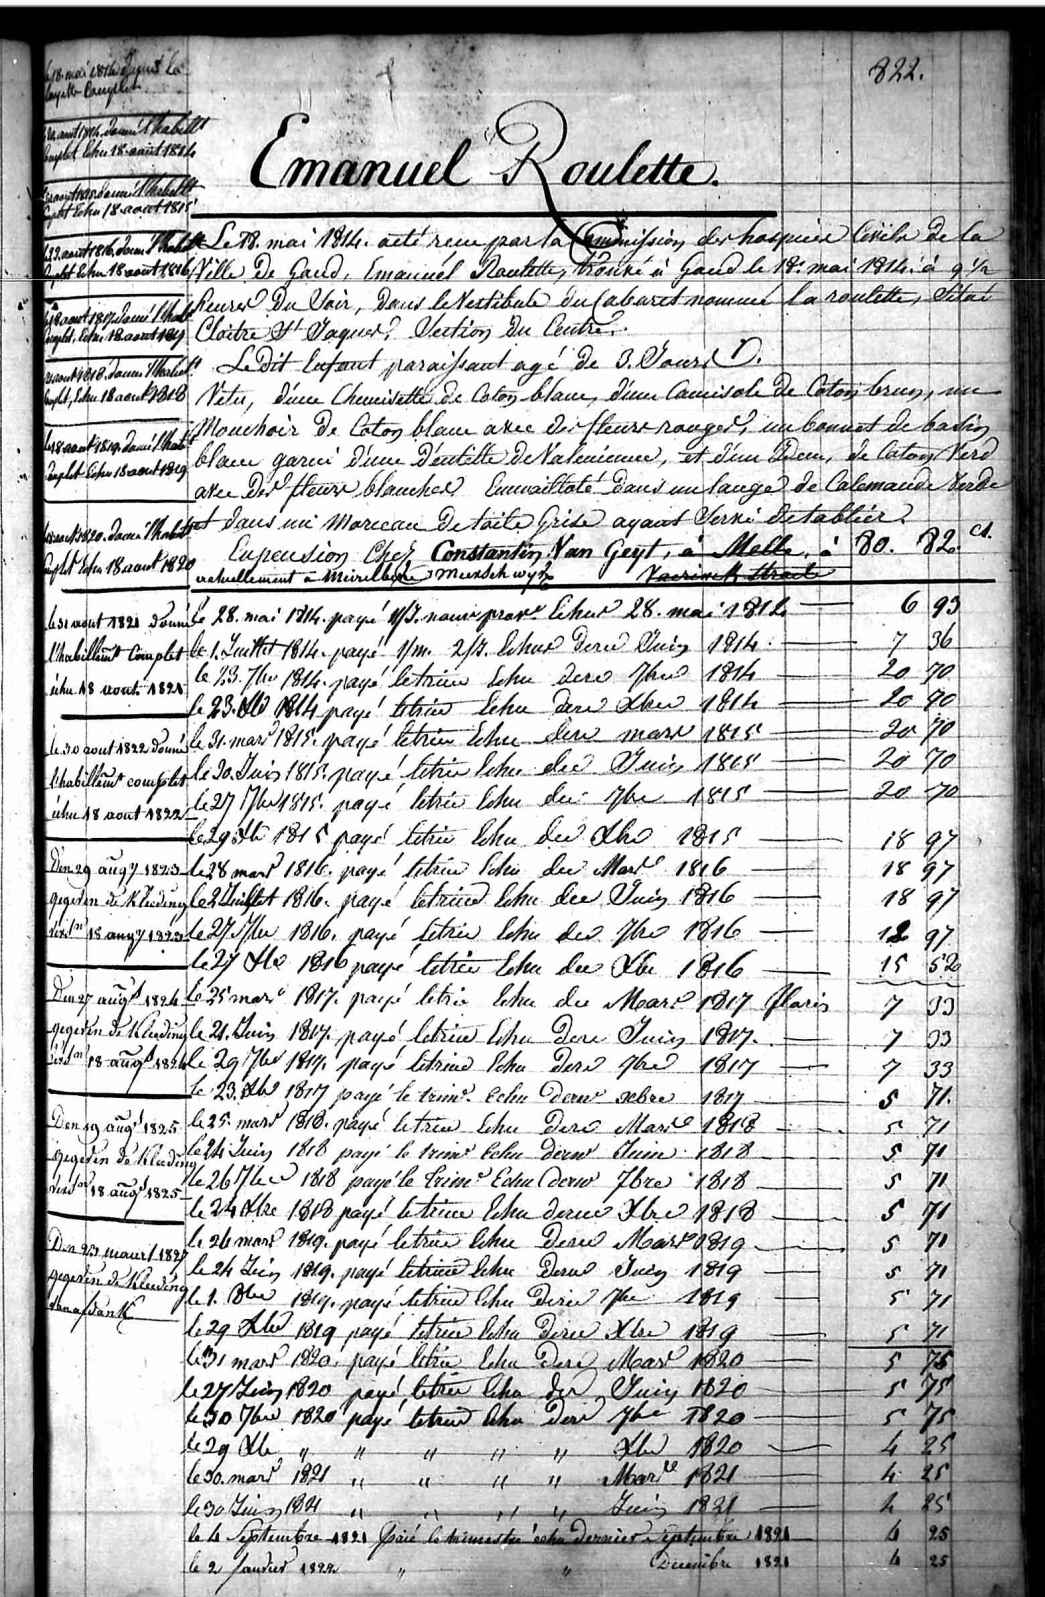 822.
Emanuel Roulette.
Le 18. mai 1814. a été reçu par la Commission des hospices Civils de la
Ville de Gand, Emanuel Roulette, trouvé à Gand le 18. mai 1814. à 9 1/2
heures Du Soir, Dans le Vestibule du Cabaret nommé la roulette, Situé
Cloitre St Jaques. Section Du Centre.
Le Dit Enfant paraissant agé de 3. Jours.
Vetu, d'une Chemisette de Coton blanc, d'une Camisole de Coton brun, un
Mouchoir de Coton blanc avec des fleurs rouges, un bonnet de basin
blanc garni d'une Dentelle de Valencienne, et d'un Idem, de Coton Verd
avec Des fleurs blanches Emmailloté Dans un lange de Calemande Verde
et dans un Morceau De toile Grise ayant Servi De tablier.
En pension Chez Constantin Van Geyt, à Melle, à 80. 82 cs.
actuellement à Meirelbeke
le 18. mai 1814
layette Complet
1814. donné l'habillt
Complet Echu 18 août 1814
donné l'habillt
Complet Echu 18 août 1815
le 22 août 1816. donné l'habillt
Complet Echu 18 août 1816
le 18 août 1817. donné l'habillt
Complet, Echu 18 août 1817
août 1818. donné l'habillt
Complet, Echu 18 août 1818
le 18 août 1819. donné l'habillt
Complet Echu 18 août 1819
août 1820. donné l'habillt
Complet Echu 18 août 1820
le 31 août 1821 donné
l'habillemt Complet
échu 18 août 1821
le 30 août 1822 donné
l'habillemt complet
échu 18 août 1822
Den 29 augt 1823
gegeven de Kleeding
18 augt 1823
Den 27 augt 1824
gegeven de Kleeding
18 augt 1824
Den 19 augt 1825
gegeven de Kleeding
18 augt 1825
Den 23 maert 1827
gegeven de Kleeding
le 28. mai 1814. payé Echus 28. mai 1814 6 93
le 1. Juillet 1814. payé 1/m. 2/J. Echus derer Juin 1814 7 36
le 23. 7bre 1814. payé le trim Echu derer 7bre 1814 20 70
le 23. Xbre 1814 payé le trim Echu derer Xbre 1814 20 70
le 31. mars 1815. payé le trim Echu derer mars 1815 20 70
le 30. Juin 1815. payé le trim Echu der Juin 1815 20 70
le 27 7bre 1815. payé le trim Echu der 7bre 1815 20 70
le 29 Xbre 1815 payé le trim Echu der Xbre 1815 18 97
le 28 mars 1816. payé le trim Echu der Mars 1816 18 97
le 2 Juillet 1816. payé le trim Echu der Juin 1816 18 97
le 27 7bre 1816. payé le trim Echu der 7bre 1816 97
le 27 Xbre 1816 payé le trim Echu der Xbre 1816 15 52
le 25 mars 1817. payé le trim Echu der Mars 1817 florins 7 33
le 21. Juin 1817. payé le trim Echu derer Juin 1817. 7 33
le 29 7bre 1817. payé le trim Echu derer 7bre 1817 7 33
le 23. Xbre 1817 payé le trimr. Echu dernr xbre 1817 5 71.
le 25. mars 1818. payé le trim Echu derer Mars 1818 5 71
le 24 Juin 1818 payé le trimr Echu dernr Juin 1818 5 71
le 26 7bre 1818 payé le Trimr Echu dernr 7bre 1818 5 71
le 24 Xbre 1818 payé le trim Echu dernr Xbre 1818 5 71
le 26 mars 1819. payé le trim Echu derer Mars 1819 5 71
le 24 Juin 1819. payé le trim Echu derer Juin 1819 5 71
le 1. 8bre 1819. payé le trim Echu derer 7bre 1819 5 71
le 29 Xbre 1819 payé le trim Echu derer Xbre 1819 5 71
le 31 mars 1820. payé le trim Echu derer Mars 1820 5 75
le 27 Juin 1820 payé le trim Echu der Juin 1820 5 75
le 30 7bre 1820 payé le trim Echu derer 7bre 1820 5 75
le 29 Xbre " " " " " Xbre 1820 4 25
le 30. mars 1821 " " " " Mars 1821 4 25
le 30 Juin 1821 " " " " Juin 1821 4 25
le 4 Septembre 1821 payé le trimestre échu dernier Septembre 1821 4 25
le 2 Janvier 1822 " " Decembre 1821 4 25